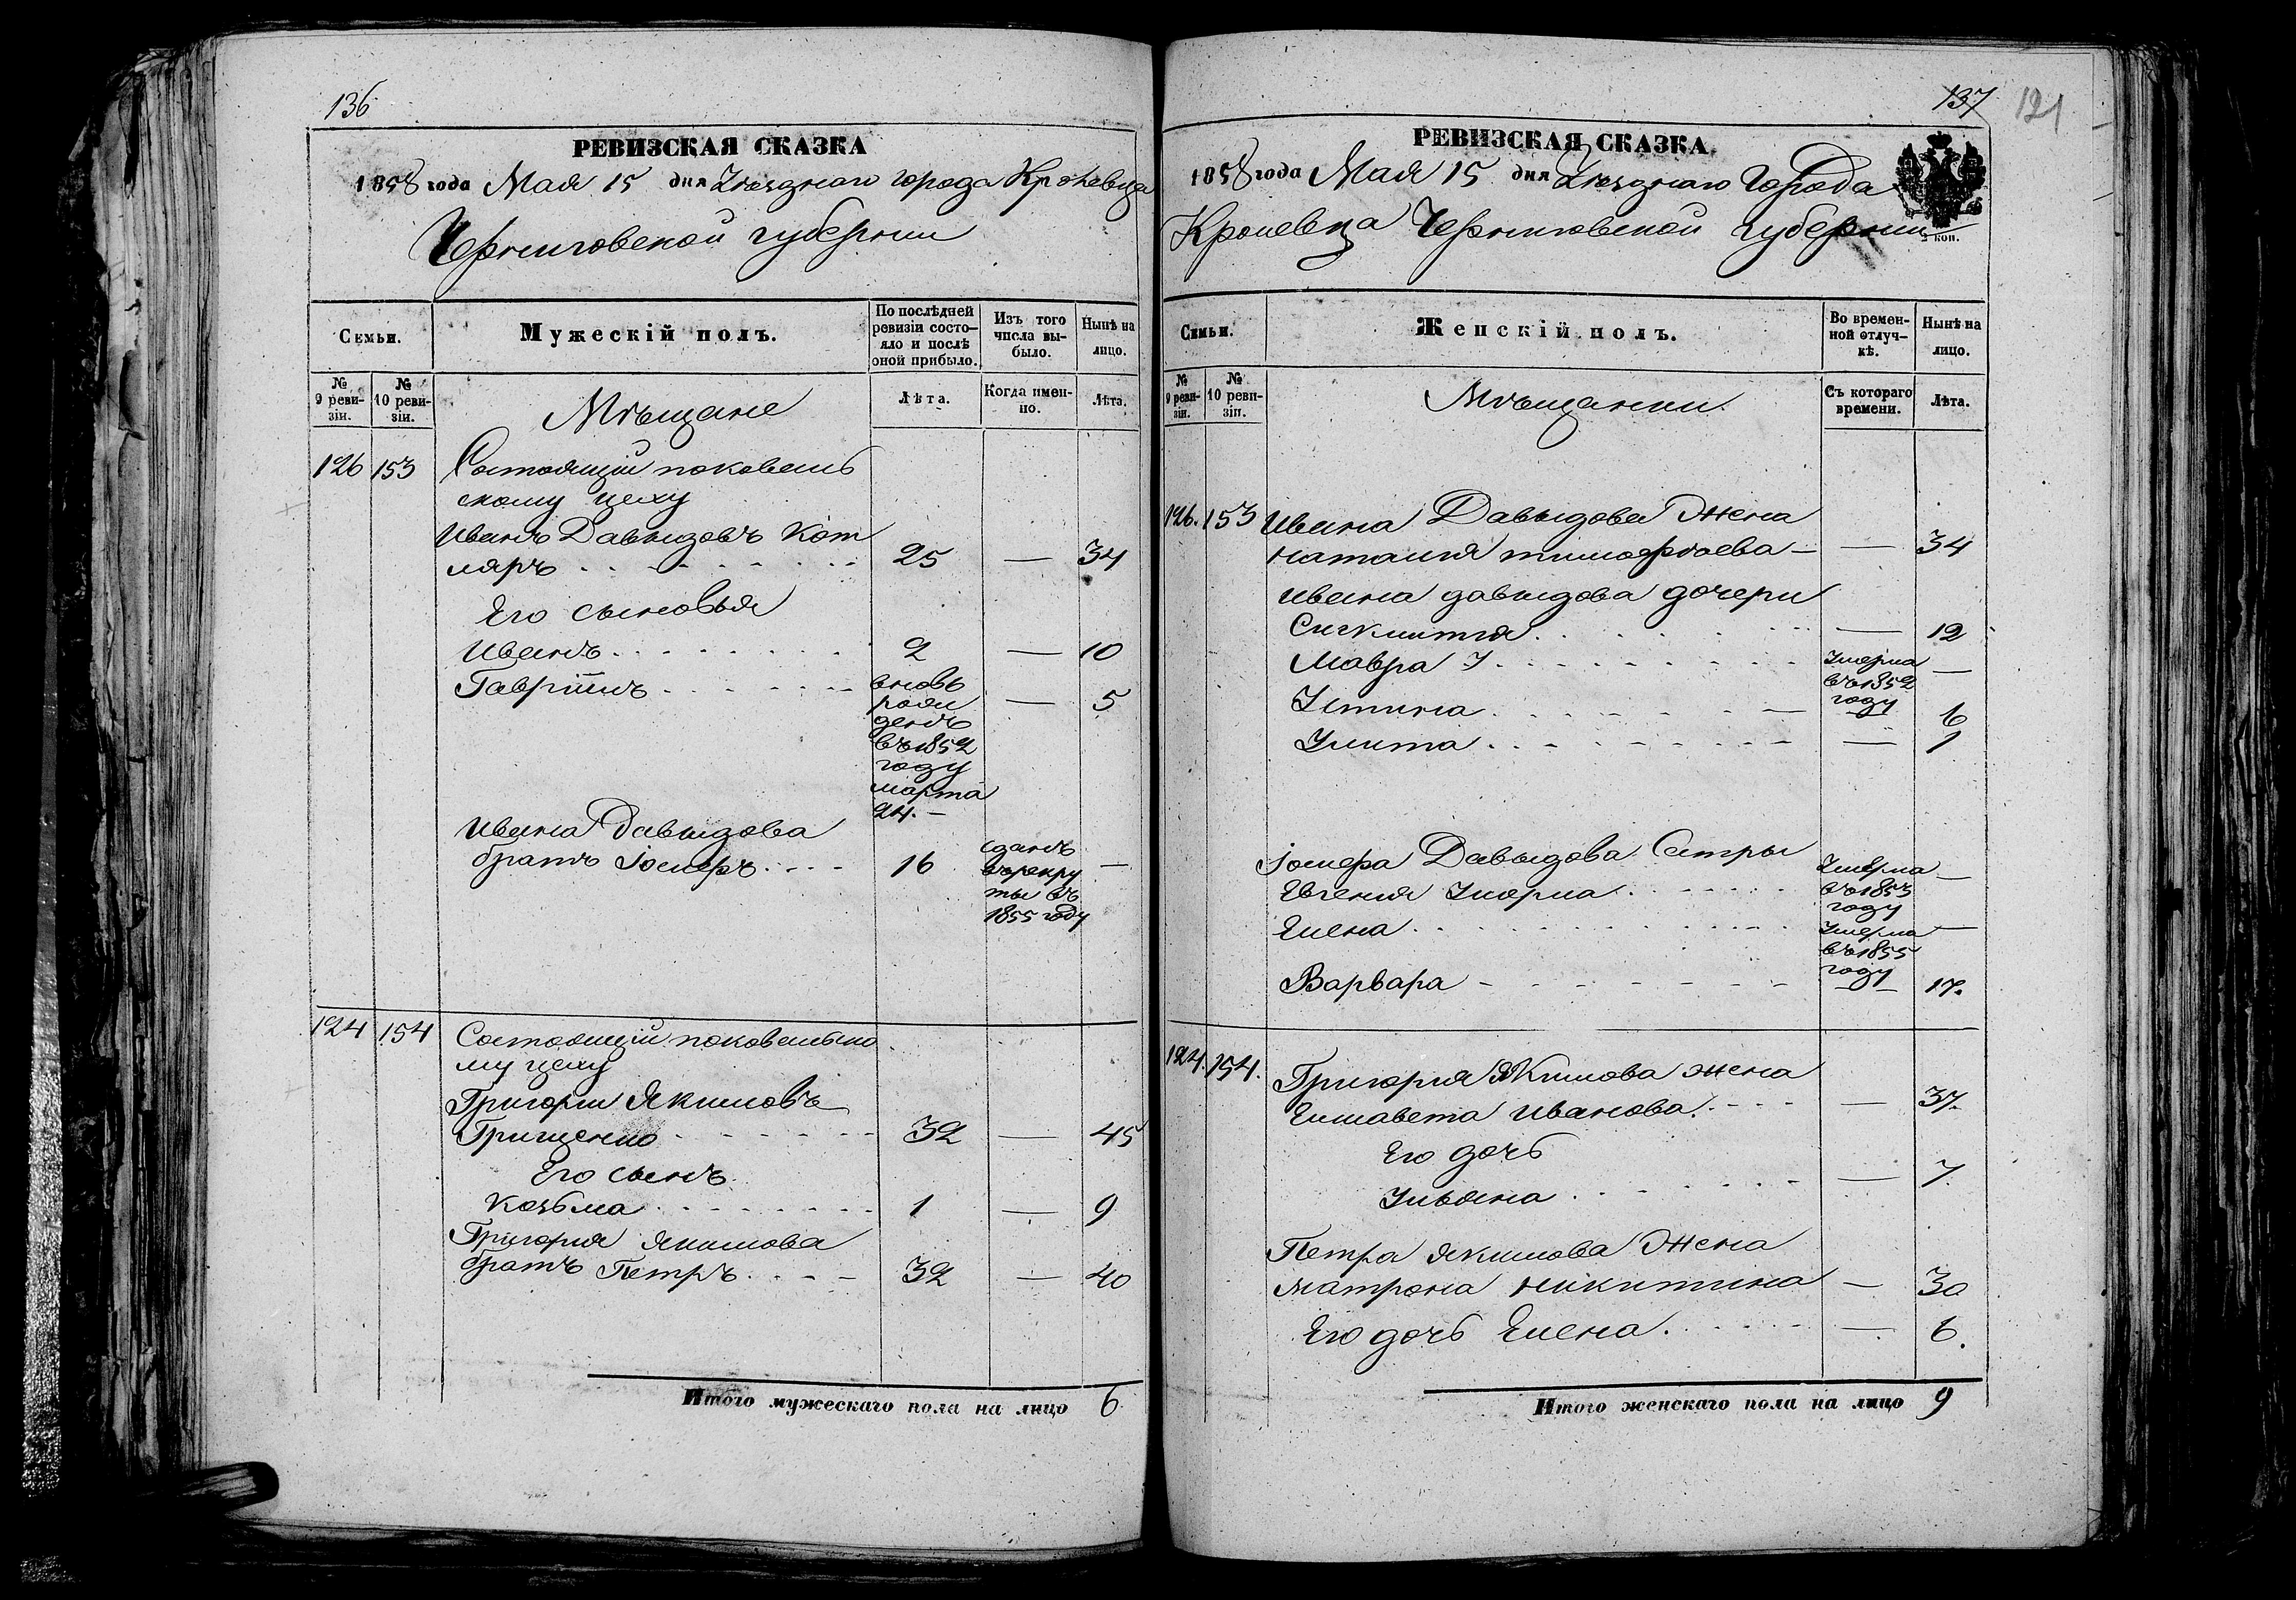 136
РЕВИЗСКАЯ СКАЗКА
1858 года Мая 15 дня Уѣзднаго города Кролевца
Черниговской губернии
Семьи.
Мужескій полъ.
По послѣдней ревизіи состо-
яло и послѣ
оной прибыло.
Изъ того
числа вы-
было.
Нынѣ на
лицо.
№
9 реви-
зіи.
№
10 реви-
зіи.
Мѣщане
Лѣта.
Когда имен-
но.
Лѣта.
126 153 Состоящій поковаль
скому цеху
Иванъ Давыдовъ Кот
ляръ 25 — 34
Его сыновья
Иванъ 2 — 10
Гавріилъ вновь — 5
рож
денъ
въ 1852
году
марта
24. –
Ивана Давыдова
братъ Іосифъ 16 сданъ —
въ рекру
ты въ
1855 году
124 154 Состоящій поковальско
му цеху
Григорий Якимовъ
Грищенко 32 — 45
Его сынъ
Козьма 1 — 9
Григория Якимова
братъ Петръ 32 — 40
Итого мужескаго пола на лицо 6
137
121
РЕВИЗСКАЯ СКАЗКА
1858 года Мая 15 дня Уѣзднаго Города
Кролевца Черниговской Губернии
2 коп.
Семьи.
Женскій полъ.
Во времен-
ной отлуч-
кѣ.
Нынѣ на
лицо.
№
9 реви-
зіи.
№
10 реви-
зіи.
Мѣщанки.
Съ котораго
времени.
Лѣта.
126. 153 Ивана Давыдова Жена
Наталия тимофѣева — — 34
Ивана давыдова дочери
— 12
Мавра У Умерла —
въ 1852
году
Устина — 6
Улита — 1
Іосифа Давыдова Сетры
Евгения Умерла Умерла —
въ 1853
году
Елена Умерла —
въ 1855
году
Варвара — 17.
124. 154. Григория Якимова жена
Елисавета Иванова — 37.
Его дочь
Ульяна — 7
Петра Якимова Жена
Матрона Никитина — 30
Его дочь Елена — 6.
Итого женскаго пола на лицо 9